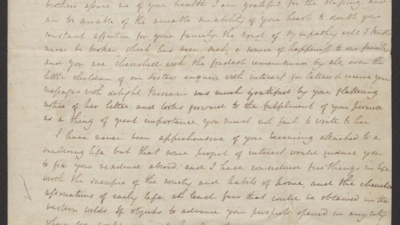 brothers assure me of your health I am grateful for the blessing and
am to sensible of the amiable sensibility of your heart to doubt your
constant affection for your family, the cord of sympathy will I trust
never be broken which has been such a source of happiness to our family
and you are cherished with the fondest remembrance by all, even the
little children of our sisters enquire with interest for letters & receive your
messages with delight was much gratified by your flattering
notice of her letter and looks forward to the fulfilment of your promise
as a thing of great importance you must not fail to write to her
I have never been apprehensive of your becoming attached to a
wandering life, but that some project of interest would induce you
to fix your residence abroad, and I have considered few things in life
worth the sacrifice of the society and habits of home, and the cherished
associations of early life, at least few that could be obtained in the
western wilds. If objects to advance your prospects opened in any city